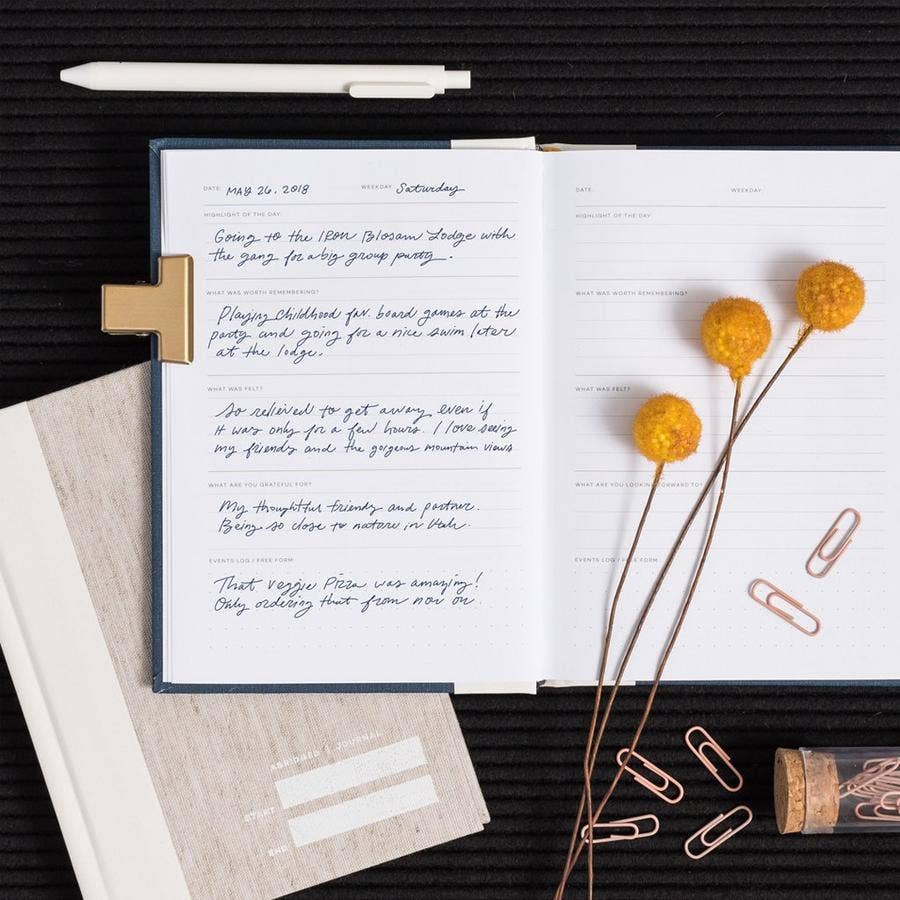 DATE: MAY 26, 2018 WEEKDAY: Saturday
HIGHLIGHT OF THE DAY:
Going to the Iron Blosam Lodge with
the gang for a big group party.
WHAT WAS WORTH REMEMBERING?
Playing childhood fav. board games at the
party and going for a nice swim later
at the lodge.
WHAT WAS FELT?
So relieved to get away, even if
it was only for a few hours. I love seeing
my friends and the gorgeous mountain views
WHAT ARE YOU GRATEFUL FOR?
My thoughtful friends and partner.
Being so close to nature in Utah.
EVENTS LOG / FREE FORM:
That Veggie Pizza was amazing!
Only ordering that from now on.
DATE: WEEKDAY:
HIGHLIGHT OF THE DAY:
WHAT WAS WORTH REMEMBERING?
WHAT WAS FELT?
WHAT ARE YOU LOOKING FORWARD TO?
EVENTS LOG / FREE FORM:
ABRIDGED JOURNAL
START
END